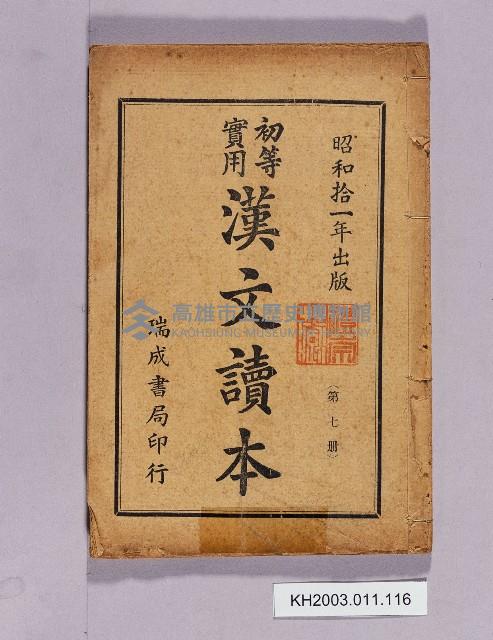 昭和拾一年出版
（第七册）
初等
實用
漢文讀本
瑞成書局印行
高雄市立歷史博物館
KAOHSIUNG MUSEUM OF HISTORY
KH2003.011.116